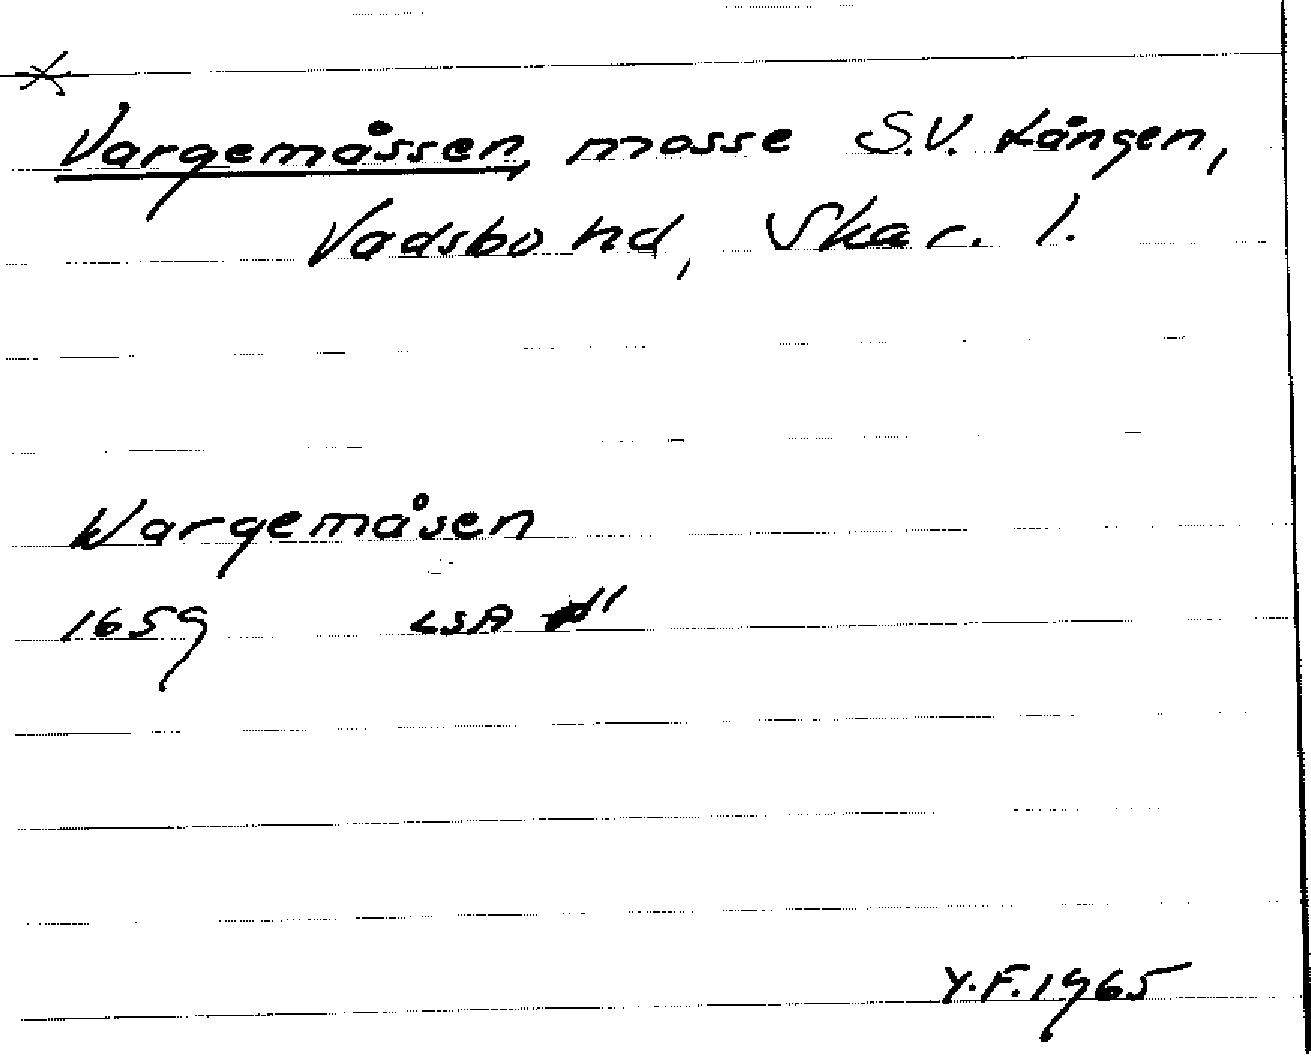 Vargemåssen, mosse S.V. Lången,
Vadsbo hd, Skar. l.
Wargemåsen
1659 LSA
Y.F. 1965